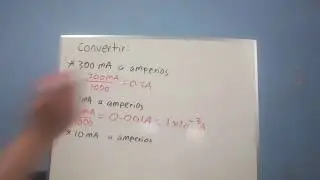 Convertir:
* 300 mA a amperios
300mA
1000
= 0.3A
mA a amperios
= 0.001A = 1x10⁻³A
* 10 mA a amperios